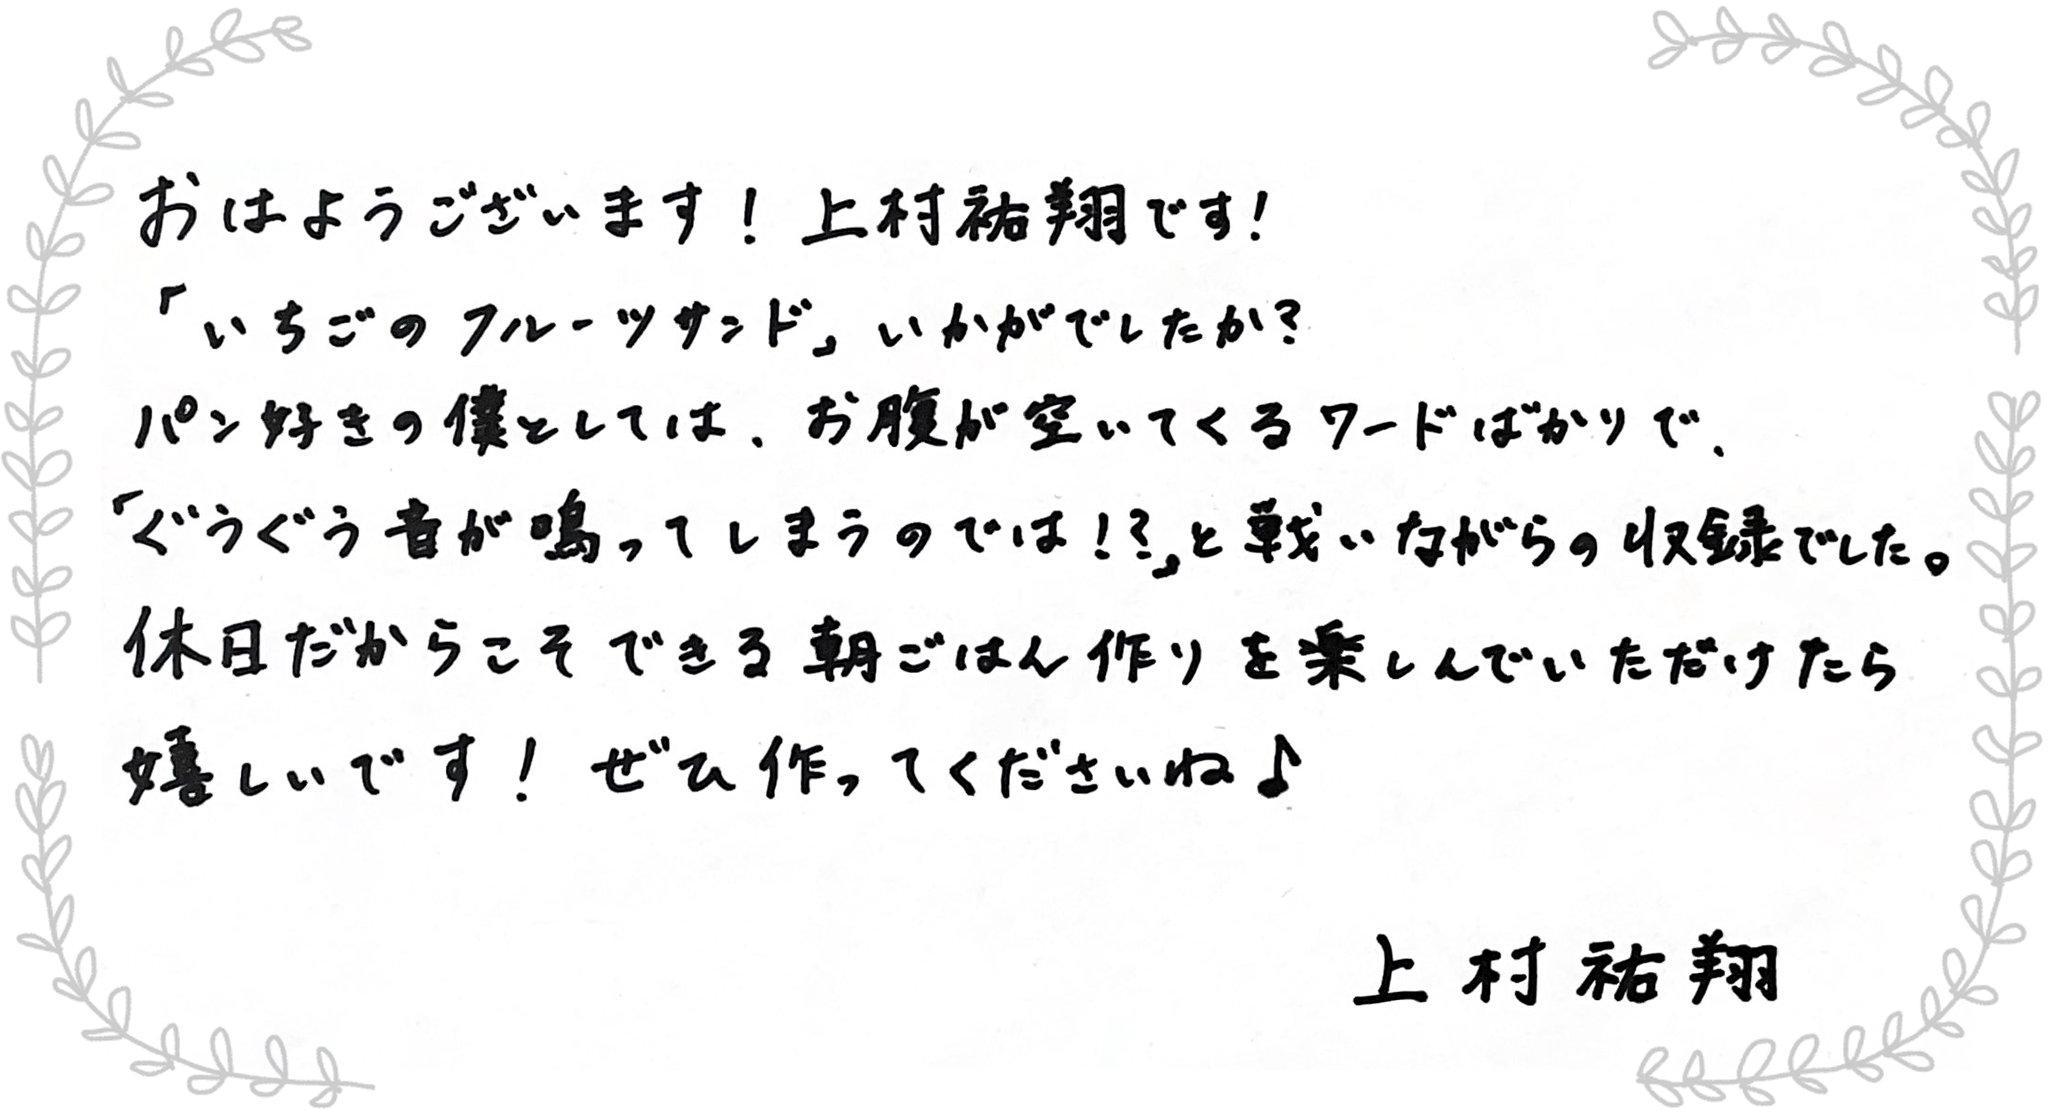 おはようございます！上村祐翔です！
「いちごのフルーツサンド」いかがでしたか？
パン好きの僕としては、お腹が空いてくるワードばかりで、
「ぐうぐう音が鳴ってしまうのでは！？」と戦いながらの収録でした。
休日だからこそできる朝ごはん作りを楽しんでいただけたら
嬉しいです！ぜひ作ってくださいね♪
上村祐翔